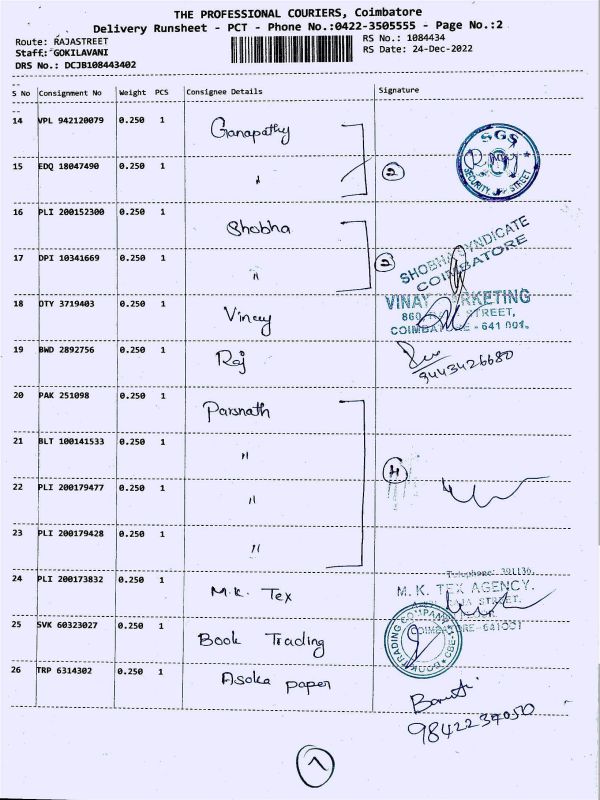 THE PROFESSIONAL COURIERS, Coimbatore
Delivery Runsheet - PCT - Phone No.:0422-3505555 - Page No.:2
Route: RAJASTREET
RS No.: 1084434
Staff: GOKILAVANI
RS Date: 24-Dec-2022
DRS No.: DCJB108443402
S No Consignment No Weight PCS Consignee Details Signature
14 VPL 942120079 0.250 1 Ganapathy
SGS
SECURITY STREET
15 EDQ 18047490 0.250 1 "
2
16 PLI 200152300 0.250 1 Shobha
SHOBHA SYNDICATE
COIMBATORE
17 DPI 10341669 0.250 1 "
2
18 DTY 3719403 0.250 1 Vinay
VINAY MARKETING
860, STREET,
COIMBATORE - 641 001.
19 BWD 2892756 0.250 1 Raj
9443426680
20 PAK 251098 0.250 1 Parsnath
21 BLT 100141533 0.250 1 "
4
22 PLI 200179477 0.250 1 "
23 PLI 200179428 0.250 1 "
24 PLI 200173832 0.250 1 M.K. Tex
Telephone: 391136,
M. K. TEX AGENCY.
RAJA STREET.
COIMBATORE-641001
25 SVK 60323027 0.250 1 Book Trading
BOOK TRADING COMPANY CBE-1
26 TRP 6314302 0.250 1 Asoka paper
9842237050
1